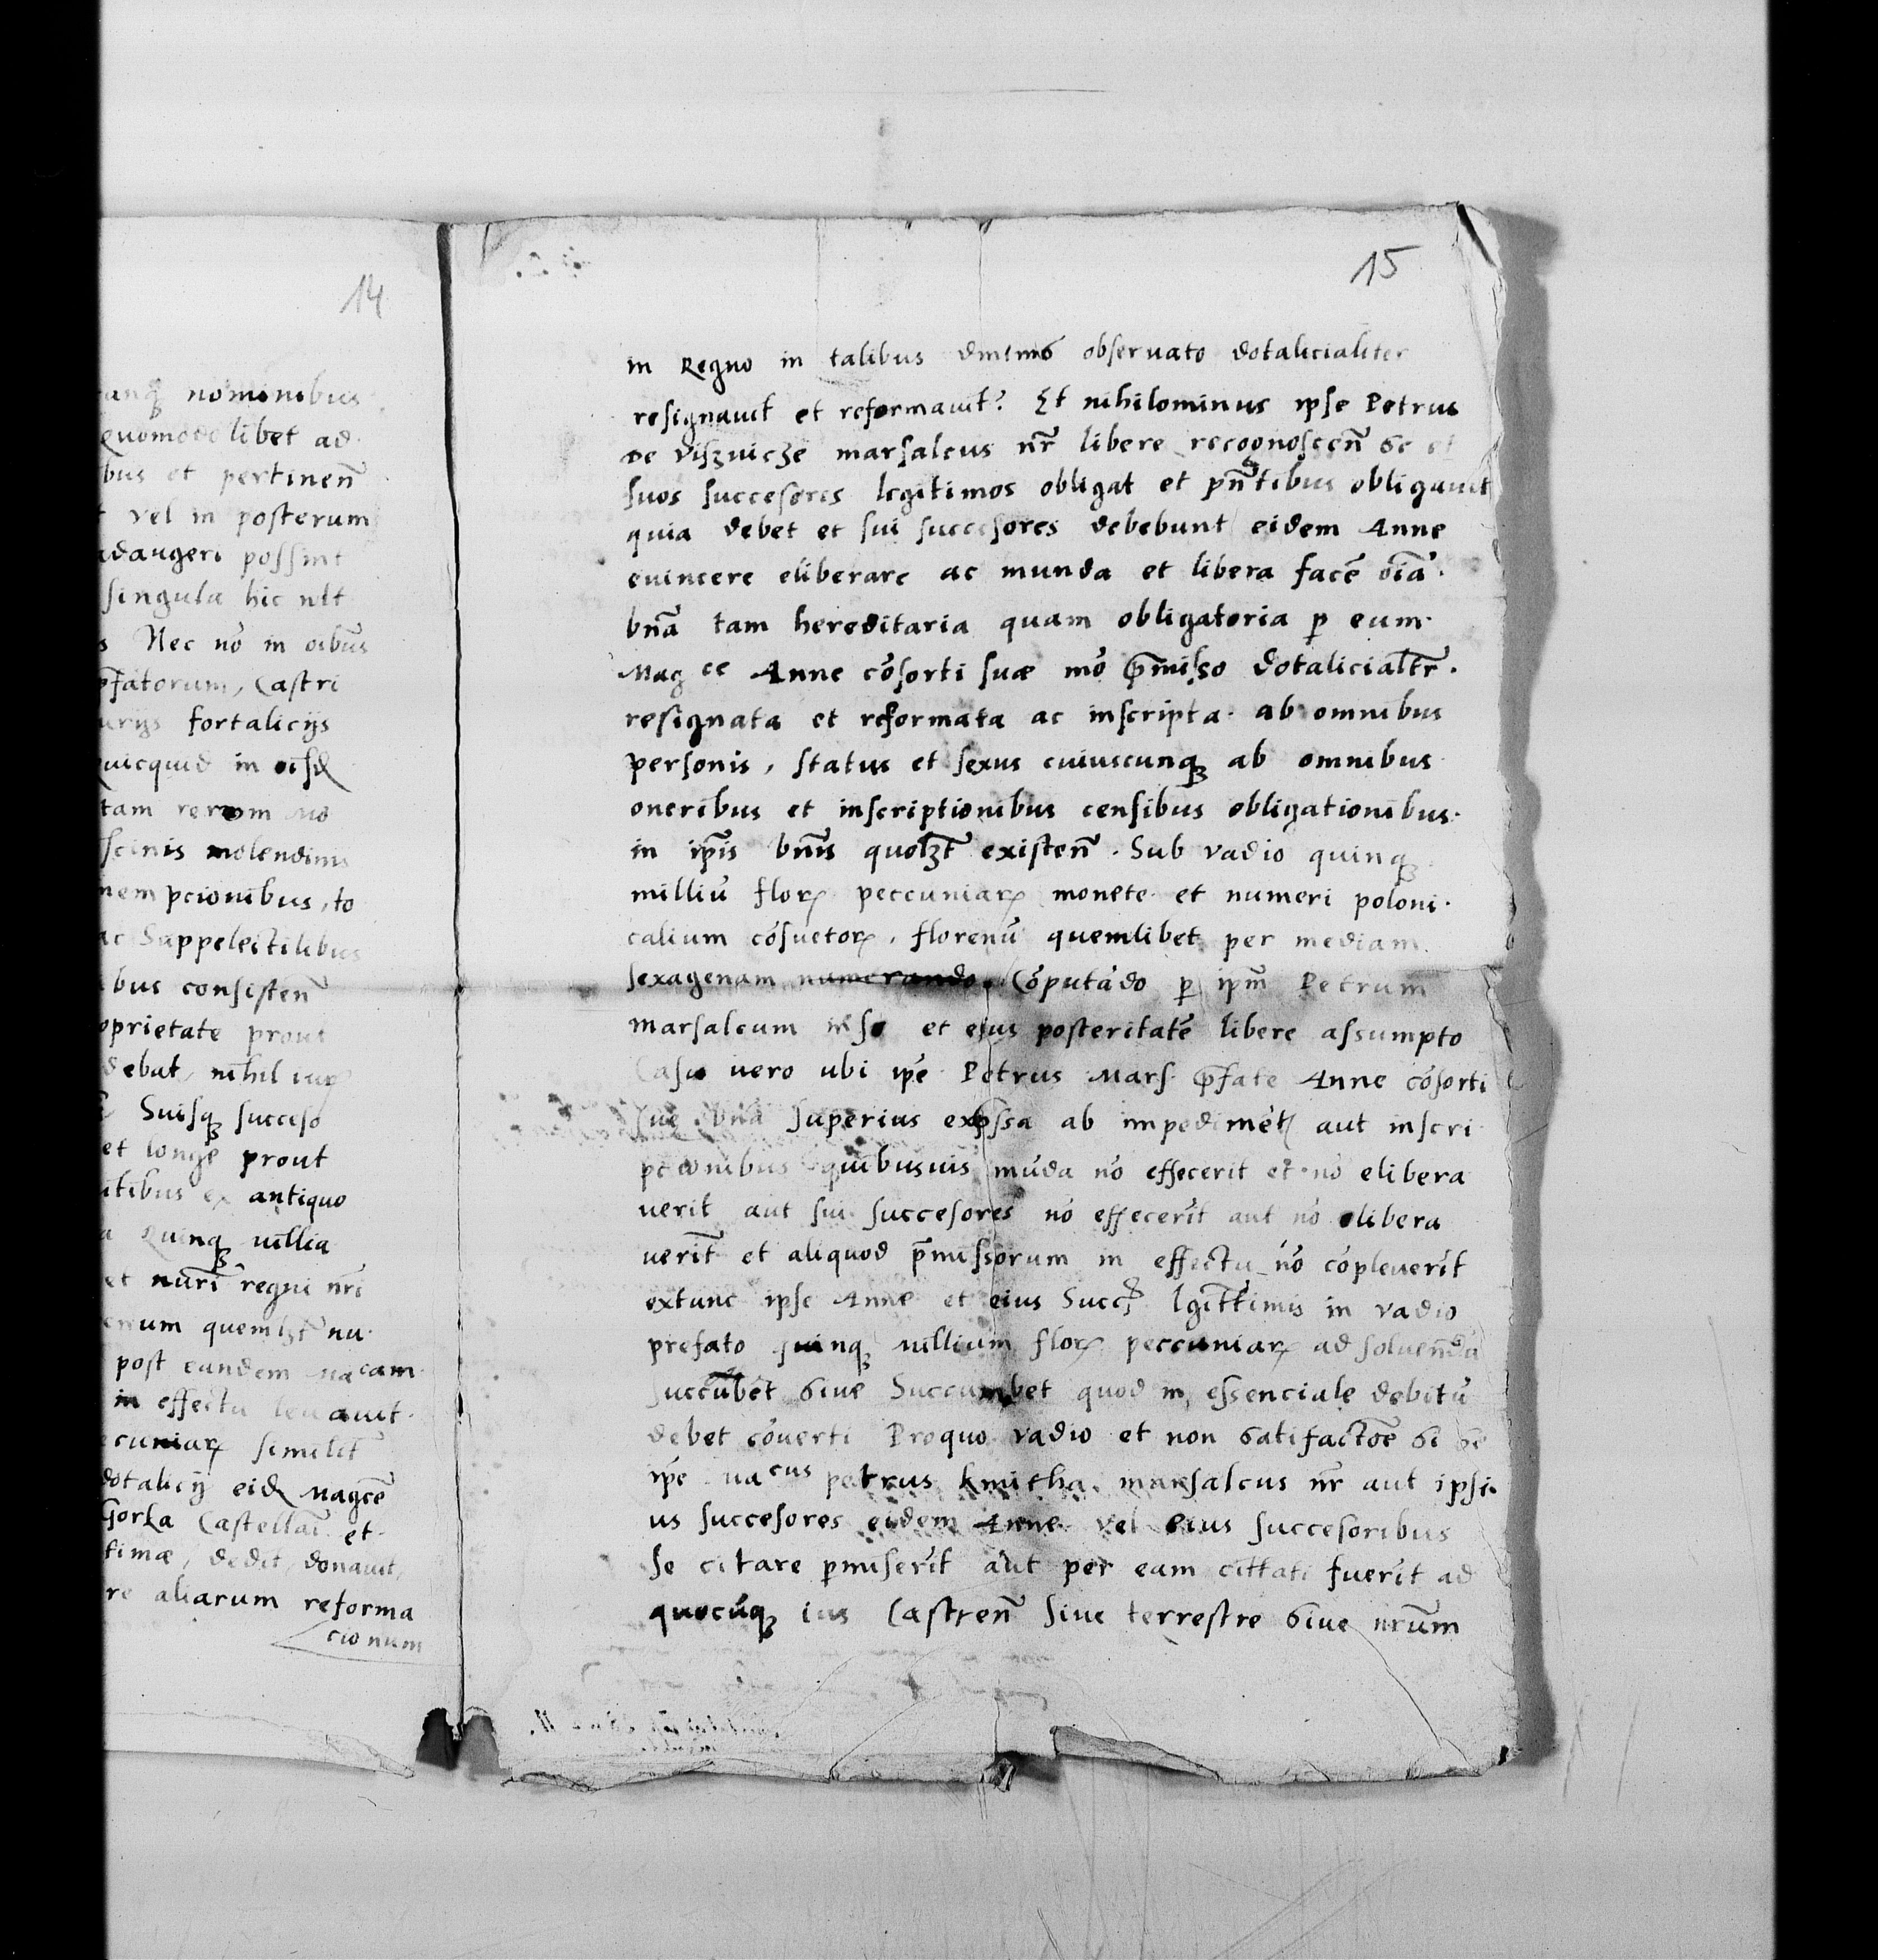 14
anq̃ nominibus
quomodolibet ad
bus et pertineñ
t vel in posterum
adaugeri possint
singula hic nlt
s Nec nō in oibus
p̄fatorum, Castri
urijs fortalicijs
quicquid in eisd
tam rerum no
scinis molendinis
nempcionibus, to
ac Suppelectilibus
ibus consisteñ
oprietate prout
debat, nihil iur
Suisq̃ succeso
et longe prout
itibus ex antiquo
a Quinq̃ millia
et nūri regni nr̄i
enum quemlꝫt nu
post eandem Macam
in effectu levavit
ecuniarꝝ similit̄
dotalicij eid Magce
Gorka Castellāi et
timæ, dedit, donavit,
re aliarum reforma
cionum
15
in Regno in talibus observato dotalicialiter
resignavit et reformavit? Et nihilominus ipse Petrus
De Viszvicze marsalcus nr̄ libere recognosceñ se et
suos succesores legitimos obligat et pn̄tibus obligavit
quia debet et sui succesores debebunt eidem Anne
evincere eliberare ac munda et libera facē oīa
bnā tam hereditaria quam obligatoria ꝑ eum
Mag ce Anne cōsorti suæ mō p̄misso dotalicialtr̄.
resignata et reformata ac inscripta ab omnibus
personis, status et sexus cuiuscunqꝫ ab omnibus
oneribus et inscriptionibus censibus obligationibus
in ip̄is bnīs quolꝫt existeñ. Sub vadio quinqꝫ
milliū florꝝ peccuniarꝝ monete et numeri poloni
calium cōsuetorꝝ, florenū quemlibet per mediam
sexagenam numerando Cōputādo ꝑ ipm̄ Petrum
marsalcum in se et eius posteritatē libere assumpto
Casu vero ubi ip̄e Petrus Mars p̄fate Anne cōsorti
sue bnā superius exp̄ssa ab impedimēt aut inscri
pcionibus quibusuis mūda nō effecerit et nō elibera
verit aut sui succesores nō effecerīt aut nō elibera
verīt et aliquod p̄missorum in effectu nō cōpleverīt
extunc ipse Anne et eius Succ lgitt̄imis in vadio
prefato quinqꝫ millium florꝝ peccuniarꝝ ad solvendū
succūbet sive Succumbet quod in essenciale debitū
debet cōverti Pro quo vadio et non satifactōe si se
ip̄e Macus petrus kmitha marsalcus nr̄ aut ipsi
us succesores eidem Anne vel eius succesoribus
se citare ꝑmiserīt aut per eam cittati fuerīt ad
quocūqꝫ ius Castreñ sive terrestre sive nr̄um